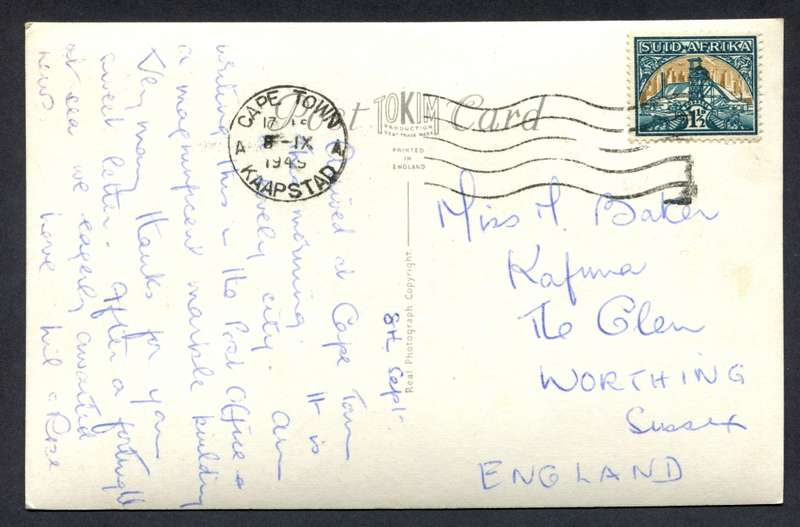 SUID-AFRIKA
1½
CAPE TOWN
8-IX
KAAPSTAD
A A
Post Card
TOKIM
PRODUCTION
PRINTED
IN
ENGLAND
Real Photograph Copyright
8th Sept.
Arrived at Cape Town
this morning. It is
a lovely city. Am
writing this in the Post Office a
a magnificent marble building
Very many thanks for your
sweet letter. After a fortnight
at sea we eagerly awaited
news.
Love
Rose
Miss M. Baker
The Glen
WORTHING
Sussex
ENGLAND